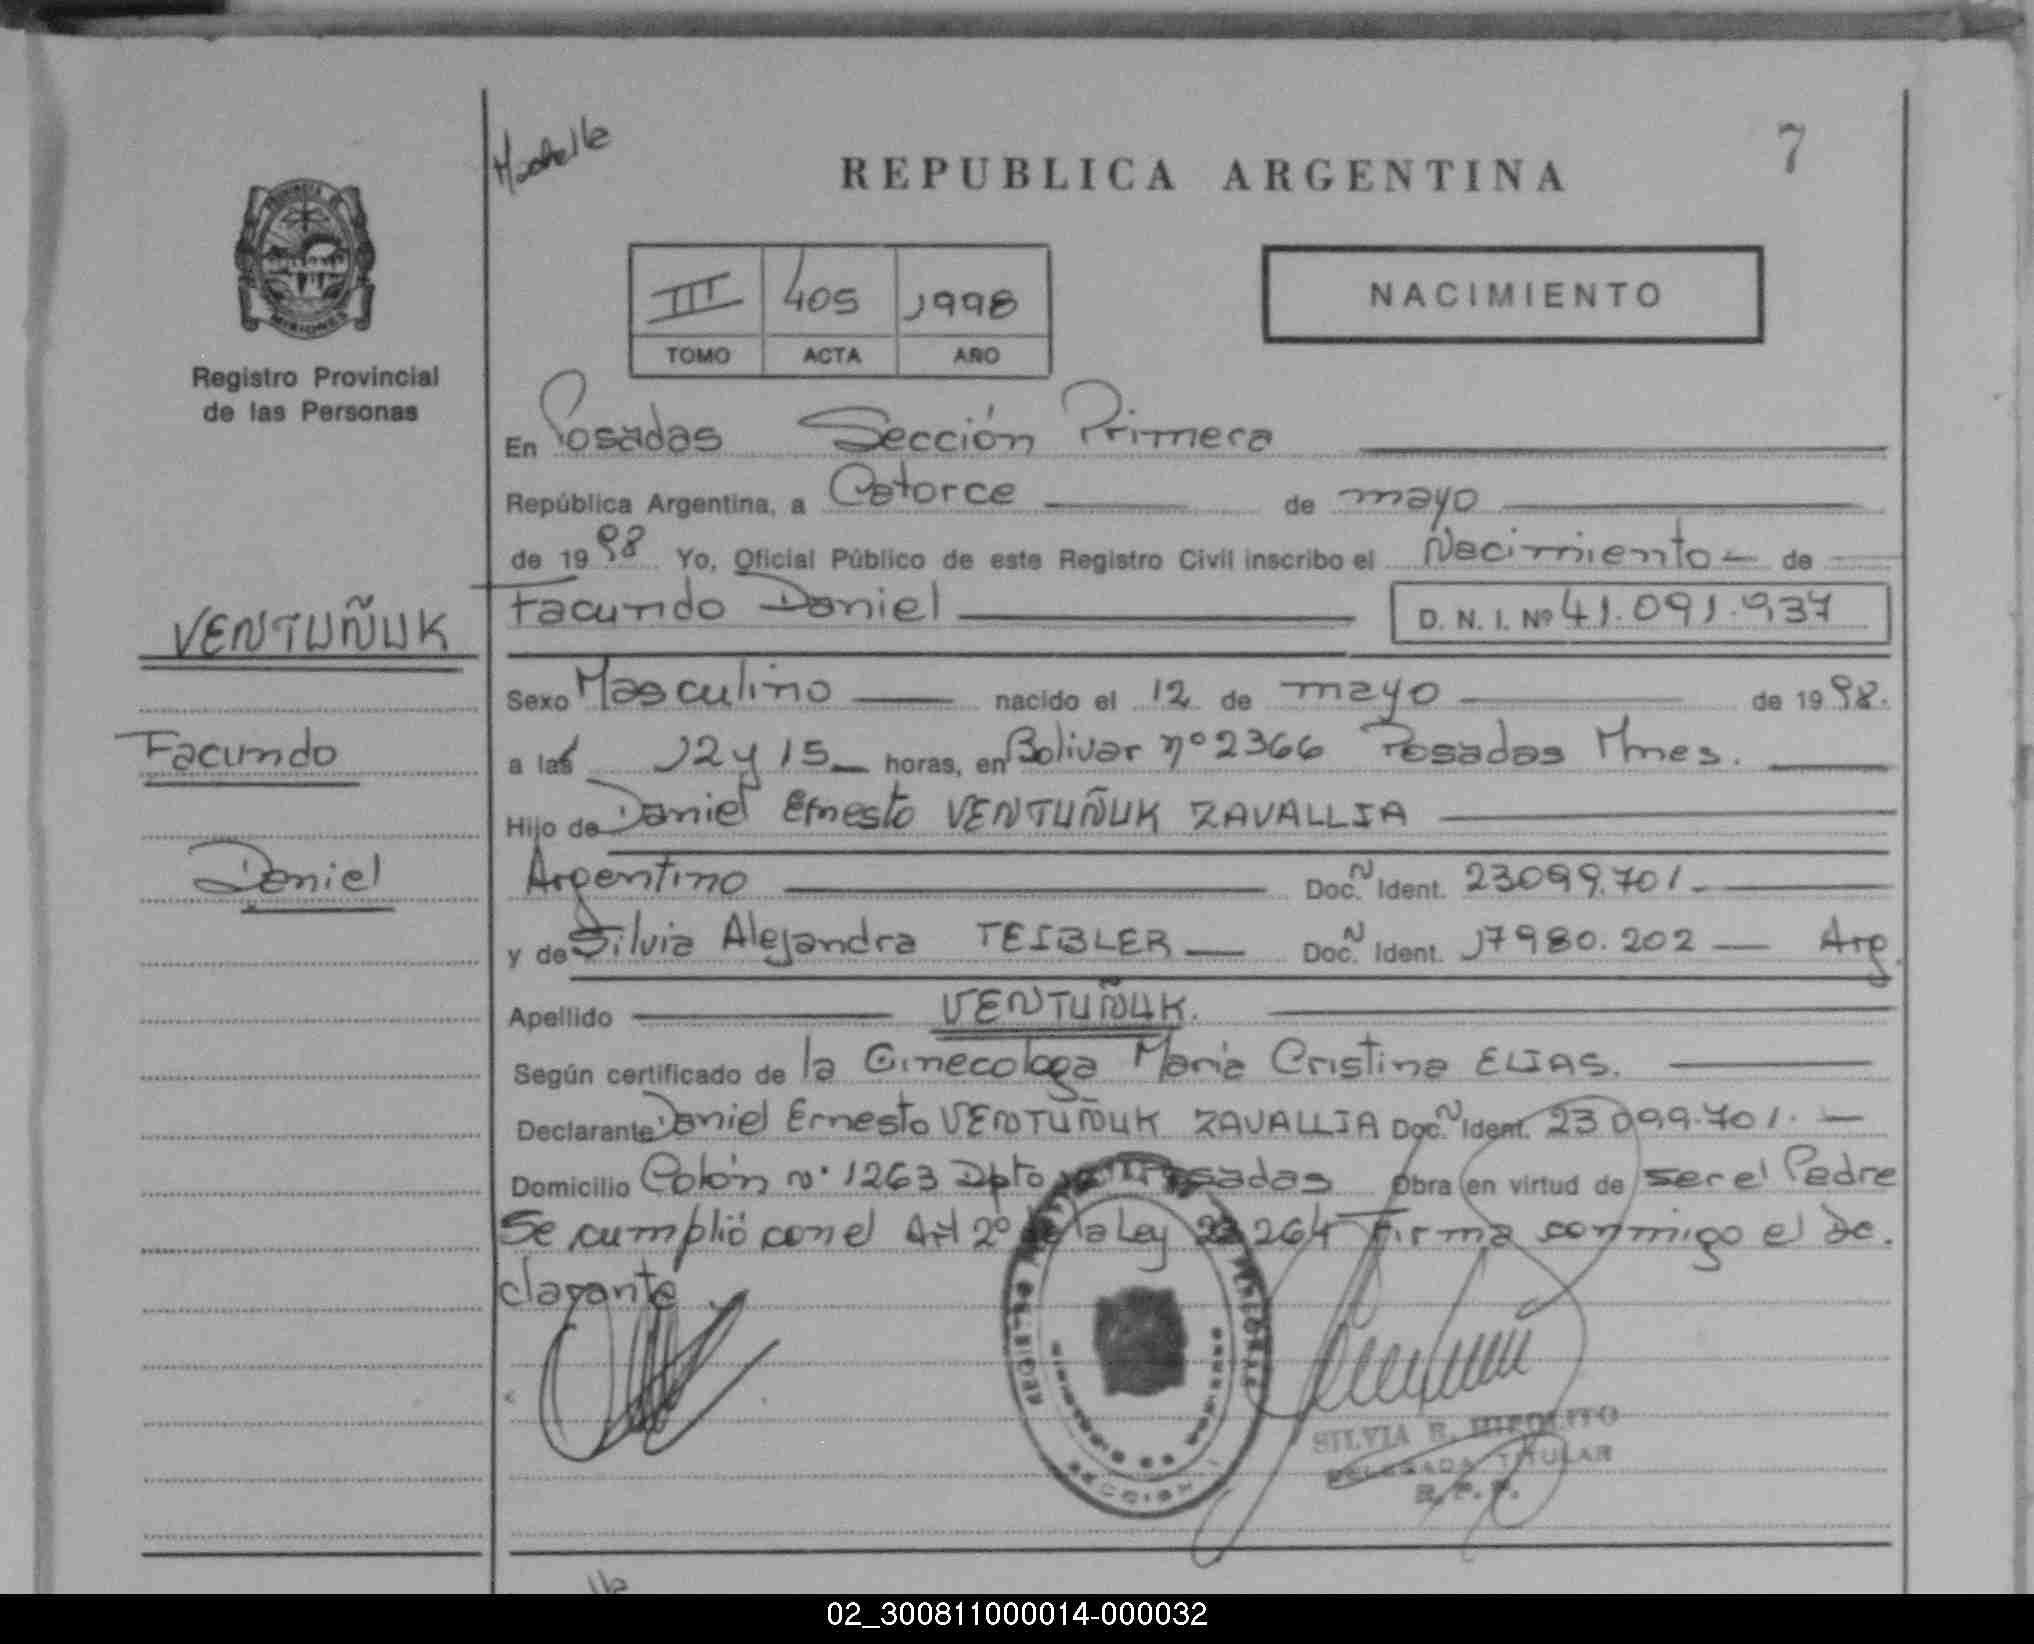 7
REPUBLICA ARGENTINA
MISIONES
Registro Provincial
de las Personas
III 405 1998
TOMO ACTA AÑO
NACIMIENTO
En Posadas Sección Primera
República Argentina, a Catorce de mayo
de 1998 Yo, Oficial Público de este Registro Civil inscribo el Nacimiento de
VENTUÑUK
Facundo Daniel D. N. I. Nº 41.091.937
Sexo Masculino nacido el 12 de mayo de 1998.
Facundo
a las 12 y 15 horas, en Bolivar nº 2366 Posadas Mnes.
Hijo de Daniel Ernesto VENTUÑUK ZAVALLIA
Daniel
Argentino Doc. N Ident. 23099.701.
y de Silvia Alejandra TEIBLER Doc. N Ident. 17980.202 Arg.
Apellido VENTUÑUK.
Según certificado de la Ginecologa Maria Cristina ELIAS.
Declarante Daniel Ernesto VENTUÑUK ZAVALLIA Doc. N Ident. 23099.701.
Domicilio Colón nº 1263 Dpto Posadas Obra en virtud de ser el Padre
Se cumplió con el Art 2º de la Ley 23264 Firma conmigo el de.
clarante
SECCION 1
SILVIA R. HIPOLITO
DELEGADA TITULAR
R. P. P.
02_300811000014-000032